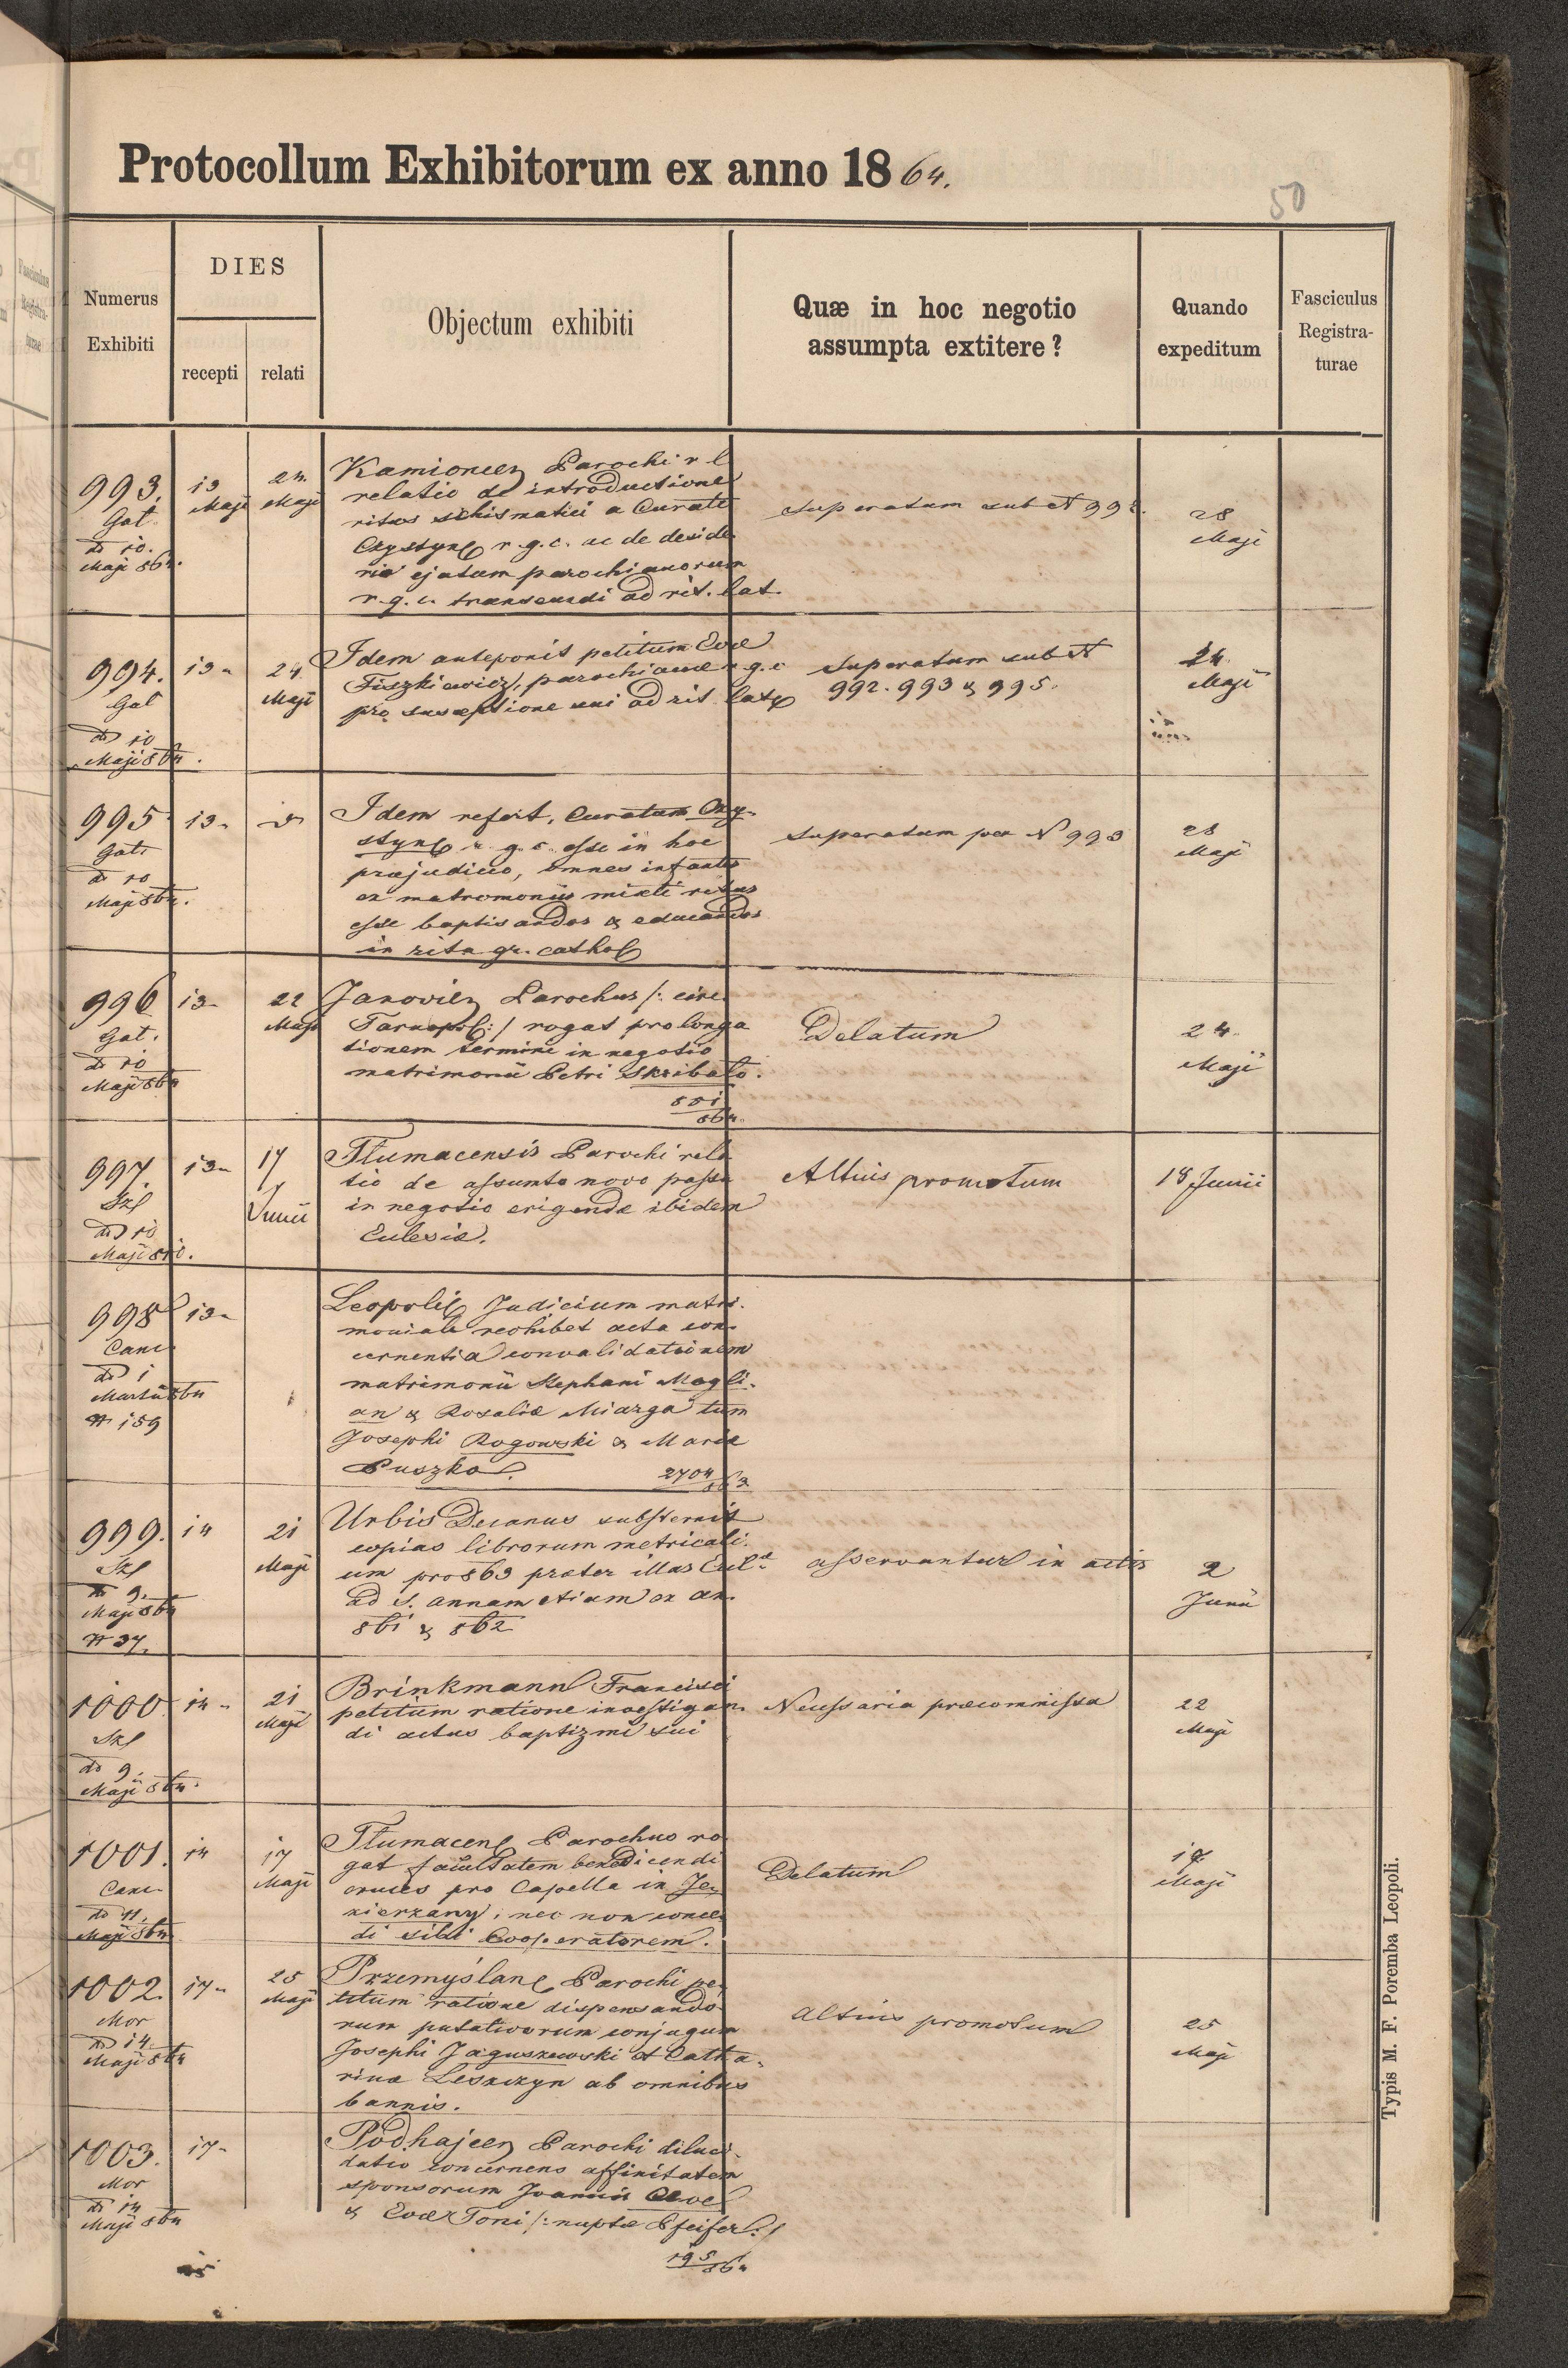 Protocollum Exhibitorum ex anno 1864.
50
Numerus Exhibiti
DIES
recepti
relati
Objectum exhibiti
Quæ in hoc negotio assumpta extitere?
Quando expeditum
Fasciculus Registraturae
993.
Gat.
do 10.
Maji 864.
13
Maji
24.
Maji
Kamioncen Parochi r l
relatio de introductione
ritus schismatici a Curato
r. g. c. ac de deside
rio ejatum parochianorum
r. g. c. transeundi ad rit. lat.
Superatum sub N 992.
28
Maji
994.
Gat
do 10
Maji 864.
13
24
Maji
Idem anteponit petitum Evæ
Fiszkiewicz, parochianæ r. g. c
pro susceptione sui ad rit. lat
Superatum sub N
992. 993 & 995.
24.
Maji
995
Gat
do 10
Maji 864.
13
Idem refert, Curatum Czy-
r. g. c. esse in hoc
præjudicio, omnes infantes
ex matromoniis mixti ritus
esse baptisandos & educandos
in ritu gr. cathol
Superatum per N 993
28
Maji
996
Gat.
do 10
Maji 864
13
22
Maji
Janovien Parochus /: circ.
Tarnopol :/ rogat prolonga
tionem termini in negotio
matrimonii Petri Skribało.
851
864.
Delatum
24.
Maji
997.
Szl
do 10
Maji
13
17
Junii
Tłumacensis Parochi rela
tio de assumto novo passu
in negotio erigendæ ibidem
Eclesiæ.
Altius promotum
18 Junii
998
Canc
do 1
Martii 864
N 159
13
Leopolie Judicium matri-
moniale reohibet acta con-
cernentia convalidationem
matrimonii Stephani Magli-
an & Rosaliæ Miarga tum
Josephi Rogowski & Mariæ
Puszka.
2704
863
999.
Szl
do 9.
Maji 864
N 37.
14
21
Maji
Urbis Decanus substernit
copias librorum metricali-
um pro 863 præter illas
ad S. Annam etiam ex an.
861 & 862
asservantur in actis
2
Junii
1000
Szl
do 9.
Maji 864.
14
21
Maji
Brinkmann Francisci
petitum ratione investigan-
di actus baptizmi sui
Necessaria præcommissa
22
Maji
1001.
Canc
do 11.
Maji 864
14
17
Maji
Tłumacen Parochus ro
gat facultatem benedicendi
cruces pro Capella in Je-
zierzany, nec non conce
di sibi Cooperatorem.
Delatum
18
Maji
1002.
Mor
do 14
Maji 864
17
25
Maji
Przemyślane Parochi pe-
titum ratione dispensando
rum putativorum conjugum
Josephi Jaguszewski et Catha-
rinæ Leszczyn ab omnibus
bannis.
altius promotum
25
Maji
1003.
Mor
do 14
Maji 864
17
Podhajcen Parochi diluci-
datio concernens affinitatem
sponsorum Joannis
& Evæ Toni /: nuptæ Pfeifer :/
195
864
Typis M. F. Poremba Leopoli.